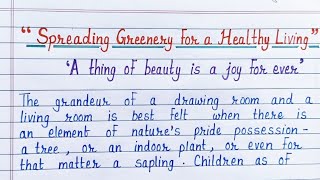 “Spreading Greenery for a Healthy Living”
‘A thing of beauty is a joy for ever’
The grandeur of a drawing room and a
living room is best felt when there is
an element of nature's pride possession-
a tree, or an indoor plant, or even for
that matter a sapling. Children as of